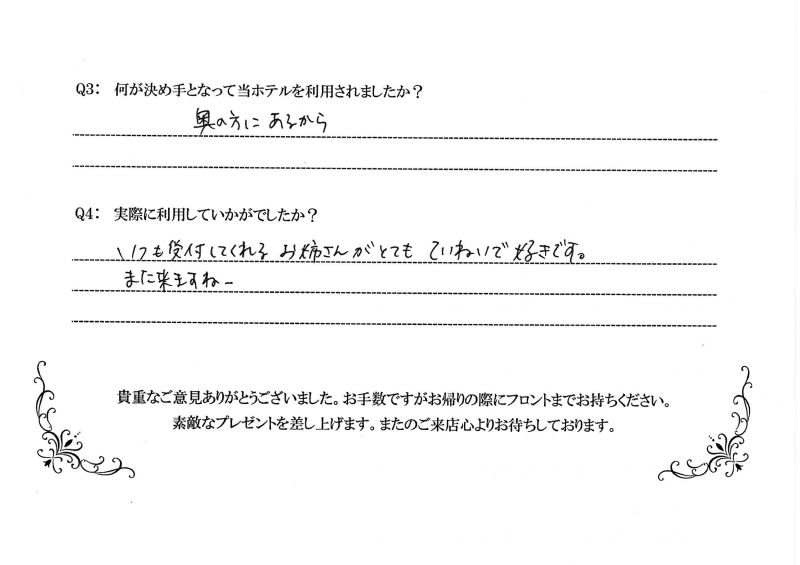 Q3: 何が決め手となって当ホテルを利用されましたか?
奥の方にあるから
Q4: 実際に利用していかがでしたか?
いつも受付してくれるお姉さんがとてもていねいで好きです。
また来ますねー
貴重なご意見ありがとうございました。お手数ですがお帰りの際にフロントまでお持ちください。
素敵なプレゼントを差し上げます。またのご来店心よりお待ちしております。